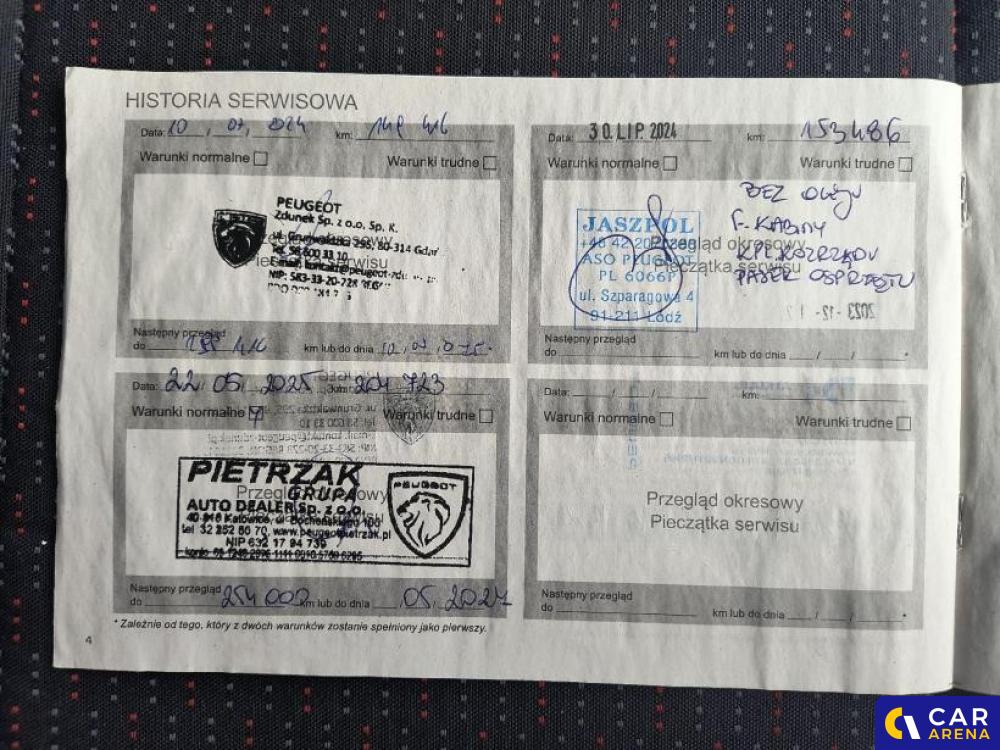 HISTORIA SERWISOWA
Data: 10, 07, 2024 km: 148 416
Warunki normalne Warunki trudne
PEUGEOT
Zdunek Sp. z o.o. Sp. K.
ul. Grunwaldzka 295, 80-314
NIP: 583-33-20-728
Następny przegląd
do km lub do dnia
Data: 30. LIP. 2024 km: 153486
Warunki normalne Warunki trudne
JASZPOL
ASO PEUGEOT
PL 6066P
ul. Szparagowa 4
91-211 Łódź
Przegląd okresowy
Pieczątka serwisu
BEZ OLEJU
F. KABINY
KPL ROZRZĄDU
PASEK OSPRZĘTU
Następny przegląd
do km lub do dnia / / *
Data: 22. 05. 2025 204 723
Warunki normalne Warunki trudne
PIETRZAK
GRUPA
AUTO DEALER Sp. z o.o.
40-816 Katowice, ul. Bocheńskiego 100
tel 32 252 60 70, www.peugeotpietrzak.pl
NIP 632 17 94 739
PEUGEOT
Następny przegląd
do 254 000 km lub do dnia 05. 2027
Data: / / km:
Warunki normalne Warunki trudne
Przegląd okresowy
Pieczątka serwisu
Następny przegląd
do km lub do dnia / / *
* Zależnie od tego, który z dwóch warunków zostanie spełniony jako pierwszy.
4
CAR
ARENA